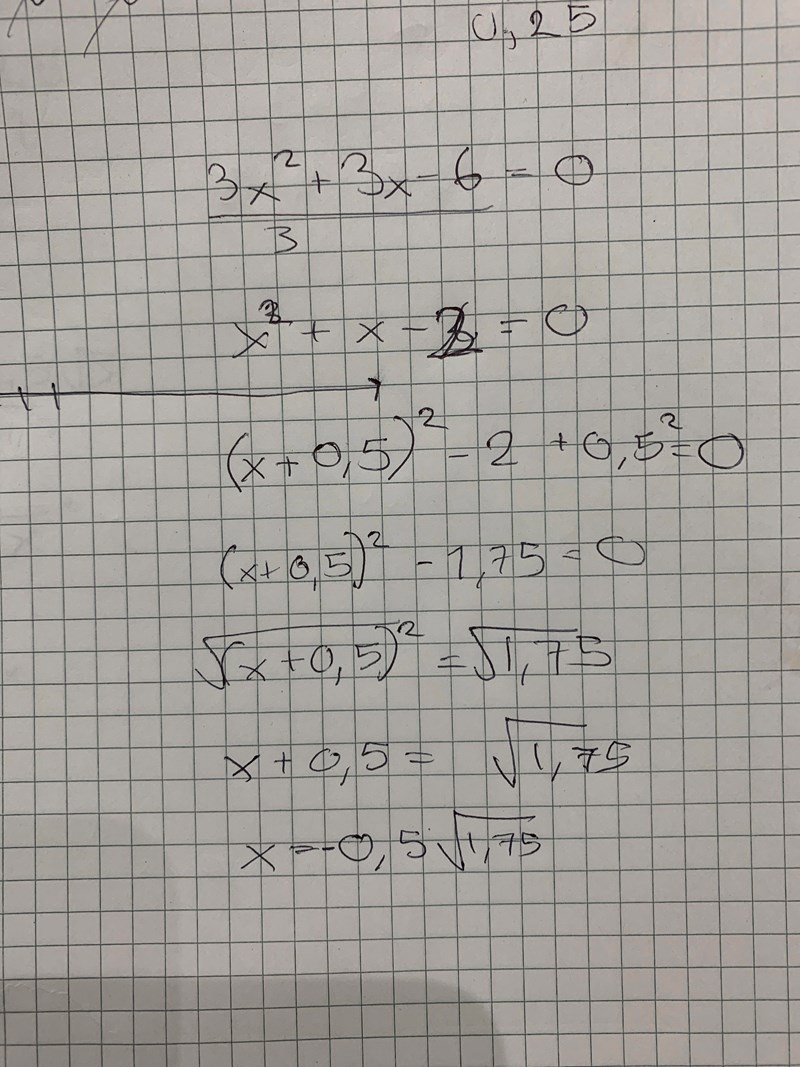 0,25
3x² + 3x - 6 = 0
3
x² + x - 2 = 0
(x + 0,5)² - 2 + 0,5² = 0
(x + 0,5)² - 1,75 = 0
√(x + 0,5)² = √1,75
x + 0,5 = √1,75
x = -0,5 √1,75